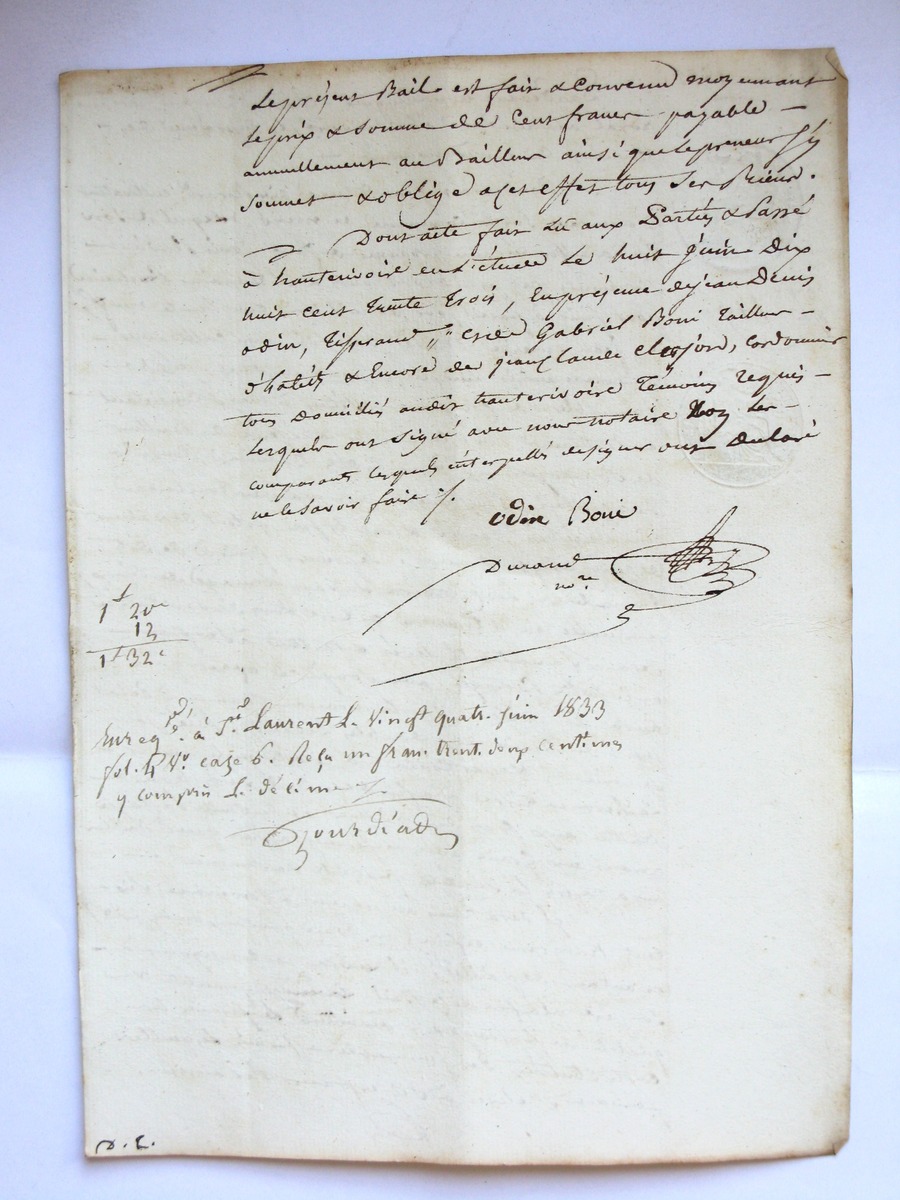 Le présent Bail est fait & Convenu moyennant
Le prix & Somme de Cent francs payable
annuellement au Bailleur ainsi que le preneur s'y
Soumet & oblige a cet effet tous Ses Biens.
Dont acte fait Lû aux Parties & Passé
à hauterivoire en L'étude Le huit juin Dix
huit cent Trente Trois, En présence de jean Denis
odin, Tisserand, Gabriel Boni Tailleur
d'habits & Encore de jean Claude Clerjon, Cordonnier
tous Domiciliés audit hauterivoire Témoins requis
Lesquels ont Signé avec nous notaire Non Les
comparants Lesquels interpellés de signer ont Declaré
ne le Savoir faire ./.
odin Boni
Durand
nore
1f 20c
12
1f 32c
Enregé. à St. Laurent L. vingt quatr. juin 1833
fol. Vo. case 6. Reçu un franc trent. deux centimes
y compris L. décime
D. L.